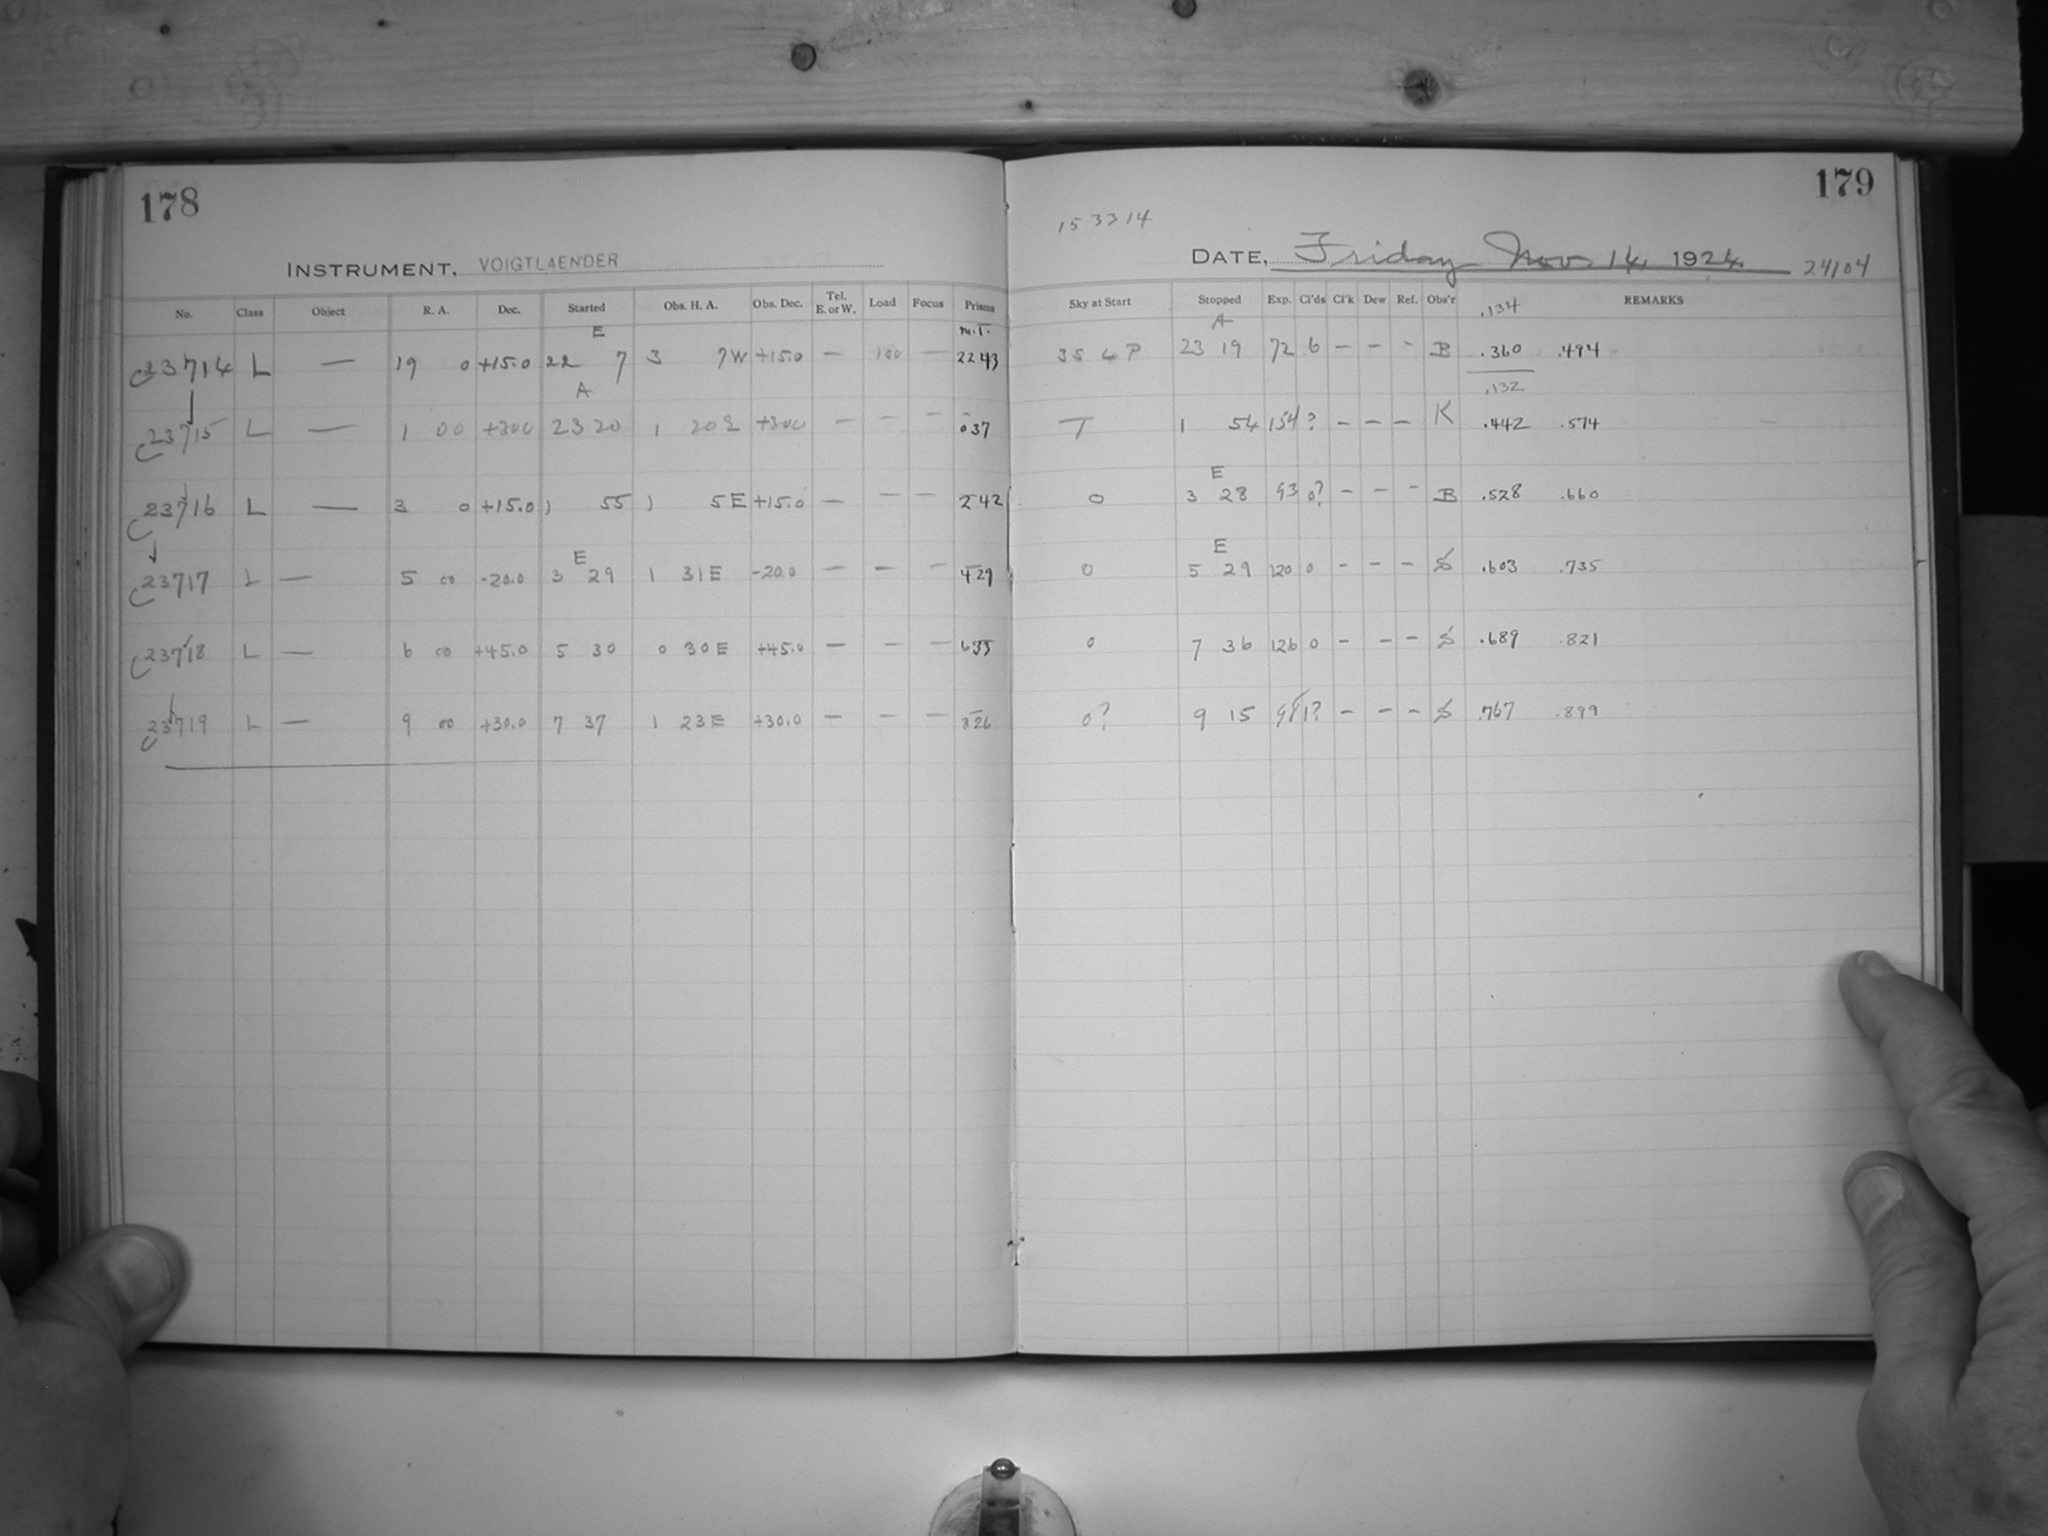 178
INSTRUMENT, VOIGTLAENDER
No. Class Object R. A. Dec. Started Obs. H. A. Obs. Dec. Tel. E. or W. Load Focus Prisms
E M.T.
23714 L — 19 0 +15.0 22 7 3 7W +15.0 — 100 — 2243
A
23715 L — 1 00 +300 23 20 1 20E +300 — — — 037
23716 L — 3 0 +15.0 1 55 1 5E +15.0 — — — 242
E
23717 L — 5 00 -20.0 3 29 1 31E -20.0 — — — 429
23718 L — 6 00 +45.0 5 30 0 30E +45.0 — — — 635
23719 L — 9 00 +30.0 7 37 1 23E +30.0 — — — 826
179
153314
DATE, Friday Nov. 14, 1924 24104
Sky at Start Stopped Exp. Cl'ds Cl'k Dew Ref. Obs'r REMARKS
A .134
3S 4P 23 19 72 6 — — - B .360 .494
.132
T 1 54 154 ? — — — K .442 .574
E
0 3 28 93 0? — — - B .528 .660
E
0 5 29 120 0 — — — S .603 .735
0 7 36 126 0 — — — S .689 .821
0? 9 15 98 1? — — — S .767 .899